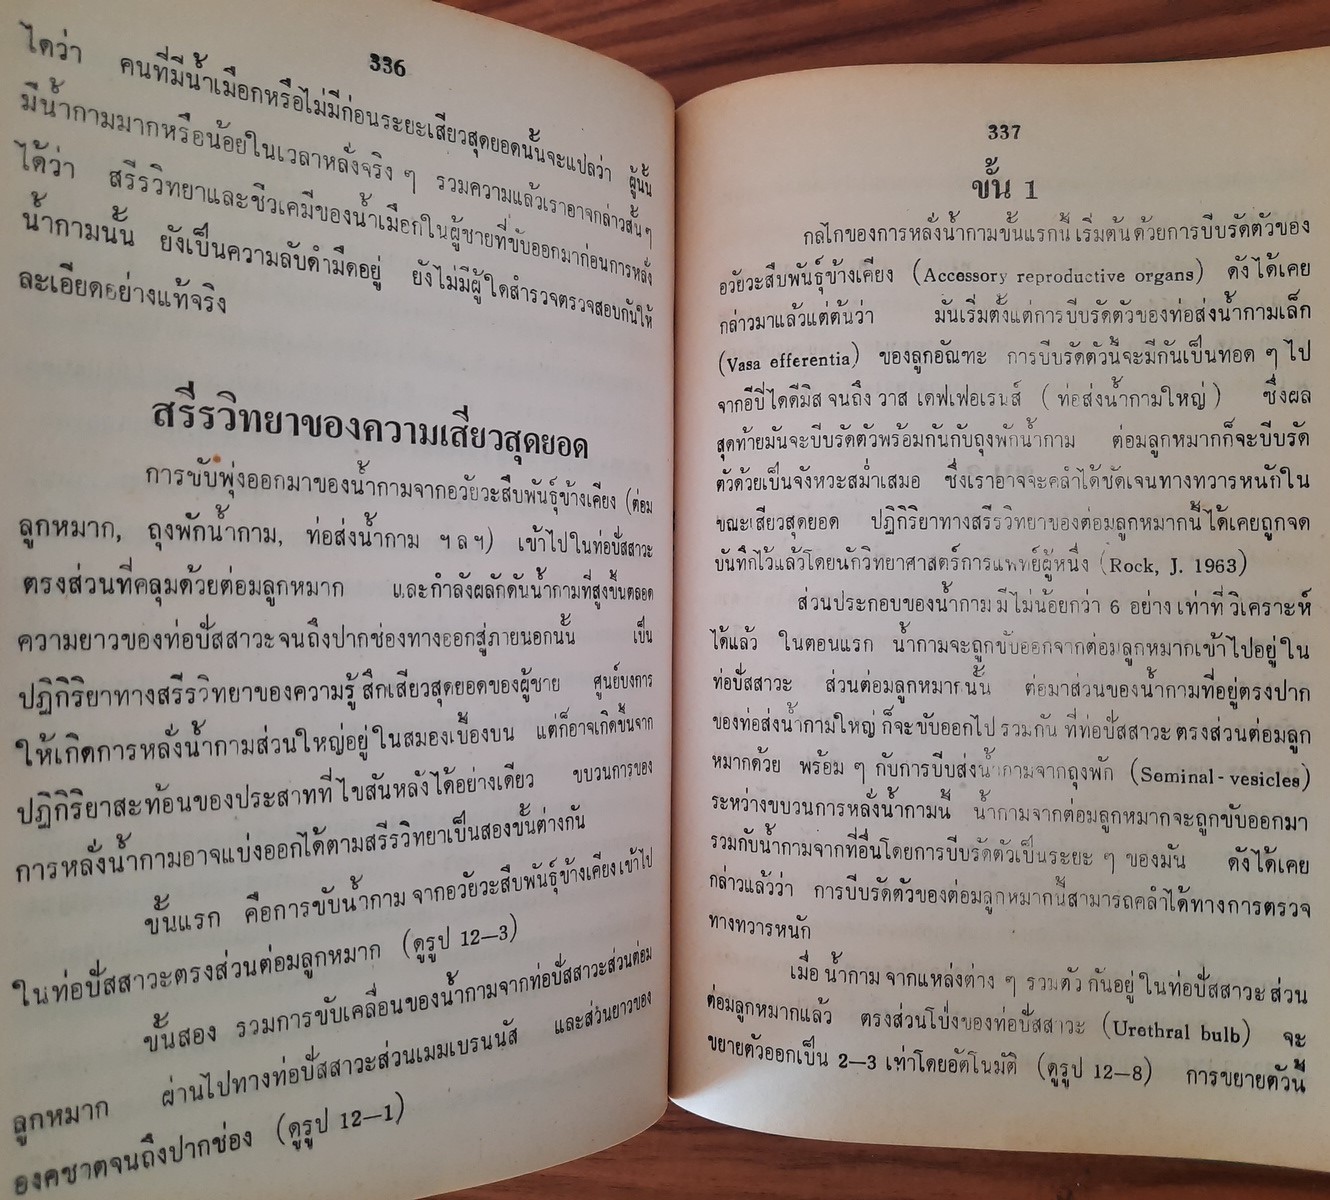 336
ไดว่า คนที่มีน้ำเมือกหรือไม่มีก่อนระยะเสียวสุดยอดนั้นจะแปลว่า ผู้นั้น
มีน้ำกามมากหรือน้อยในเวลาหลั่งจริง ๆ รวมความแล้วเราอาจกล่าวสั้นๆ
ได้ว่า สรีรวิทยาและชีวเคมีของน้ำเมือกในผู้ชายที่ขับออกมาก่อนการหลั่ง
น้ำกามนั้น ยังเป็นความลับดำมืดอยู่ ยังไม่มีผู้ใดสำรวจตรวจสอบกันให้
ละเอียดอย่างแท้จริง
สรีรวิทยาของความเสียวสุดยอด
การขับพุ่งออกมาของน้ำกามจากอวัยวะสืบพันธุ์ข้างเคียง (ต่อม
ลูกหมาก, ถุงพักน้ำกาม, ท่อส่งน้ำกาม ฯลฯ) เข้าไปในท่อปัสสาวะ
ตรงส่วนที่คลุมด้วยต่อมลูกหมาก และกำลังผลักดันน้ำกามที่สูงขึ้นตลอด
ความยาวของท่อปัสสาวะจนถึงปากช่องทางออกสู่ภายนอกนั้น เป็น
ปฏิกิริยาทางสรีรวิทยาของความรู้สึกเสียวสุดยอดของผู้ชาย ศูนย์บงการ
ให้เกิดการหลั่งน้ำกามส่วนใหญ่อยู่ในสมองเบื้องบน แต่ก็อาจเกิดขึ้นจาก
ปฏิกิริยาสะท้อนของประสาทที่ไขสันหลังได้อย่างเดียว ขบวนการของ
การหลั่งน้ำกามอาจแบ่งออกได้ตามสรีรวิทยาเป็นสองขั้นต่างกัน
ขั้นแรก คือการขับน้ำกาม จากอวัยวะสืบพันธุ์ข้างเคียงเข้าไป
ในท่อปัสสาวะตรงส่วนต่อมลูกหมาก (ดูรูป 12—3)
ขั้นสอง รวมการขับเคลื่อนของน้ำกามจากท่อปัสสาวะส่วนต่อม
ลูกหมาก ผ่านไปทางท่อปัสสาวะส่วนเมมเบรนนัส และส่วนยาวของ
องคชาตจนถึงปากช่อง (ดูรูป 12—1)
337
ขั้น 1
กลไกของการหลั่งน้ำกามขั้นแรกนี้ เริ่มต้น ด้วยการบีบรัดตัวของ
อวัยวะสืบพันธุ์ข้างเคียง (Accessory reproductive organs) ดังได้เคย
กล่าวมาแล้วแต่ต้นว่า มันเริ่มตั้งแต่การบีบรัดตัวของท่อส่งน้ำกามเล็ก
(Vasa efferentia) ของลูกอัณฑะ การบีบรัดตัวนี้จะมีกันเป็นทอด ๆ ไป
จากอีปี่ไดดีมิส จนถึง วาส เดฟเฟอเรนส์ (ท่อส่งน้ำกามใหญ่) ซึ่งผล
สุดท้ายมันจะบีบรัดตัวพร้อมกันกับถุงพักน้ำกาม ต่อมลูกหมากก็จะบีบรัด
ตัวด้วยเป็นจังหวะสม่ำเสมอ ซึ่งเราอาจจะคลำได้ชัดเจนทางทวารหนักใน
ขณะเสียวสุดยอด ปฏิกิริยาทางสรีรวิทยาของต่อมลูกหมากนี้ได้เคยถูกจด
บันทึกไว้แล้วโดยนักวิทยาศาสตร์การแพทย์ผู้หนึ่ง (Rock, J. 1963)
ส่วนประกอบของน้ำกาม มีไม่น้อยกว่า 6 อย่าง เท่าที่ วิเคราะห์
ได้แล้ว ในตอนแรก น้ำกามจะถูกขับออกจากต่อมลูกหมากเข้าไปอยู่ใน
ท่อปัสสาวะ ส่วนต่อมลูกหมากนั้น ต่อมาส่วนของน้ำกามที่อยู่ตรงปาก
ของท่อส่งน้ำกามใหญ่ ก็จะขับออกไป รวมกัน ที่ท่อปัสสาวะ ตรงส่วนต่อมลูก
หมากด้วย พร้อม ๆ กับการบีบส่งน้ำกามจากถุงพัก (Seminal - vesicles)
ระหว่างขบวนการหลั่งน้ำกามนี้ น้ำกามจากต่อมลูกหมากจะถูกขับออกมา
รวมกับน้ำกามจากที่อื่นโดยการบีบรัดตัวเป็นระยะ ๆ ของมัน ดังได้เคย
กล่าวแล้วว่า การบีบรัดตัวของต่อมลูกหมากนี้สามารถคลำได้ทางการตรวจ
ทางทวารหนัก
เมื่อ น้ำกาม จากแหล่งต่าง ๆ รวมตัว กันอยู่ ในท่อปัสสาวะ ส่วน
ต่อมลูกหมากแล้ว ตรงส่วนโป่งของท่อปัสสาวะ (Urethral bulb) จะ
ขยายตัวออกเป็น 2—3 เท่าโดยอัตโนมัติ (ดูรูป 12—8) การขยายตัวนี้